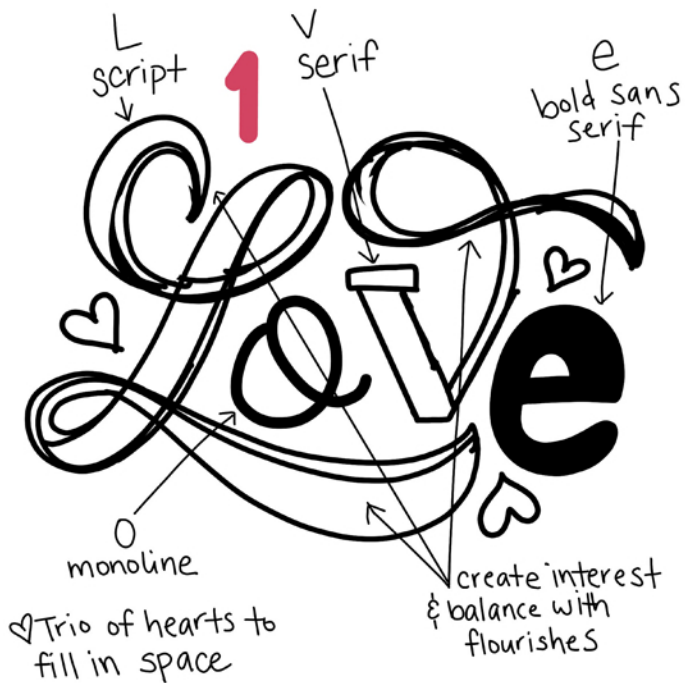 L
script
1
V
serif
e
bold sans
serif
Love
O
monoline
♡Trio of hearts to
fill in space
create interest
& balance with
flourishes